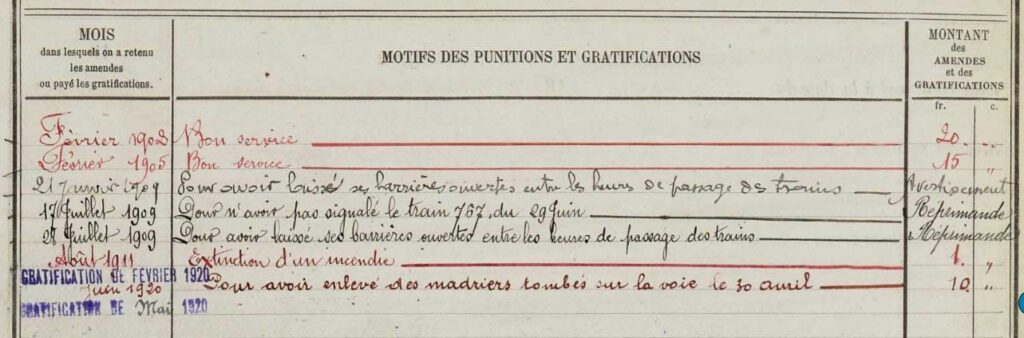 MOIS
dans lesquels on a retenu
les amendes
ou payé les gratifications.
MOTIFS DES PUNITIONS ET GRATIFICATIONS
MONTANT
des
AMENDES
et des
GRATIFICATIONS
fr. c.
Février 1903 Bon service 20 "
Février 1905 Bon service 15 "
21 Janvier 1909 Pour avoir laissé ses barrières ouvertes entre les heures de passage des trains Avertissement
17 Juillet 1909 Pour n'avoir pas signalé le train 767, du 29 Juin Réprimande
28 Juillet 1909 Pour avoir laissé ses barrières ouvertes entre les heures de passage des trains Réprimande
Août 1911 Extinction d'un incendie 1. "
GRATIFICATION DE FÉVRIER 1920
Juin 1920 Pour avoir enlevé des madriers tombés sur la voie le 30 avril 10 "
GRATIFICATION DE Mai 1920